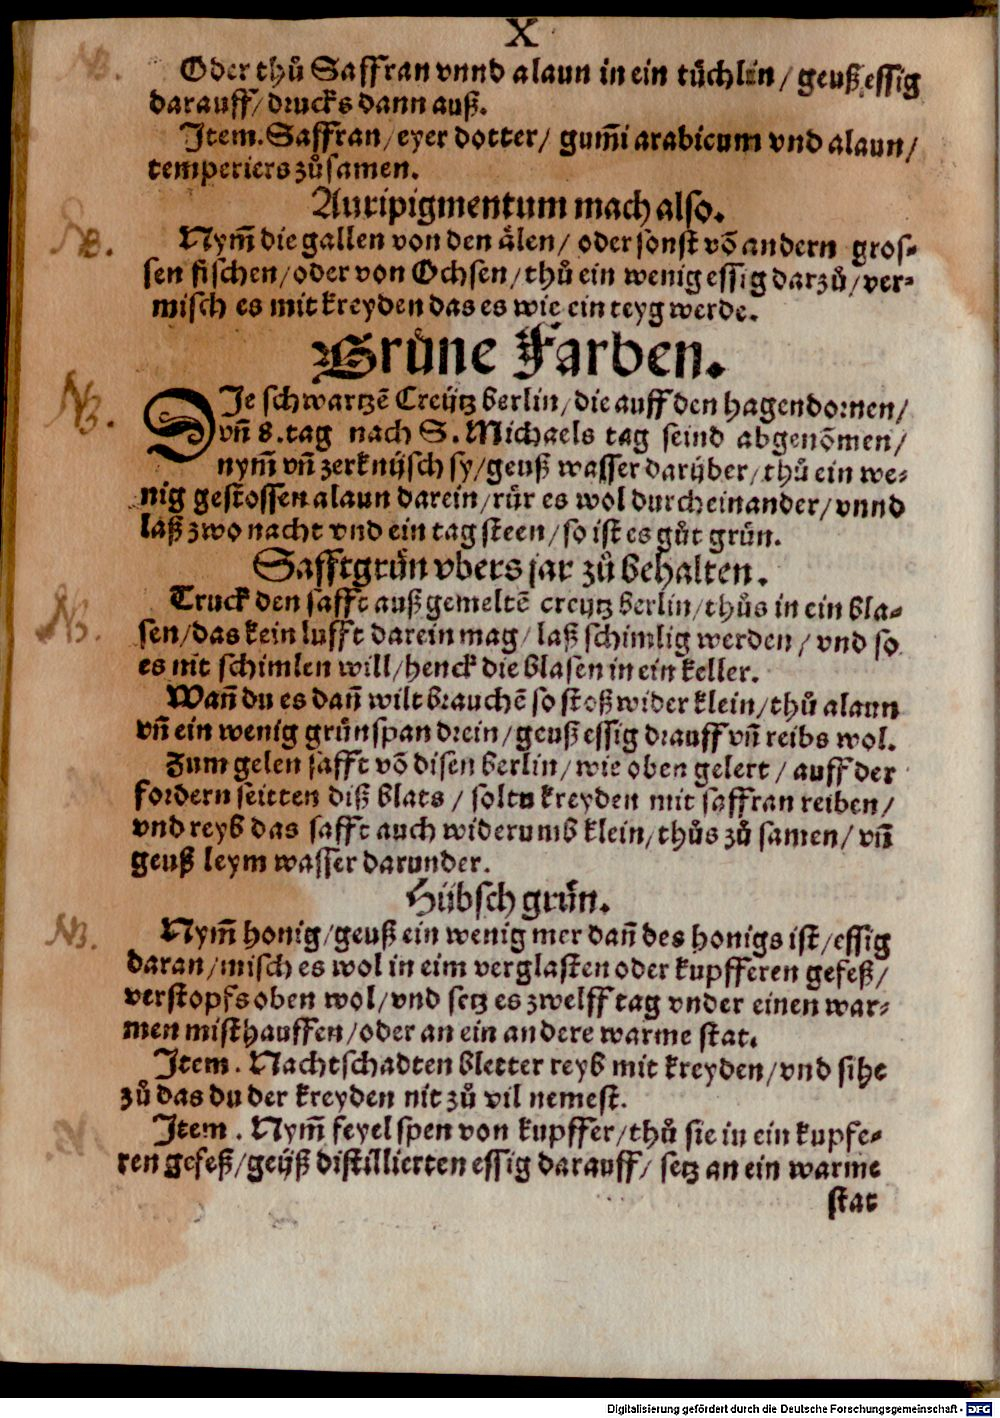 X
Oder thů Saffran vnnd alaun in ein tüchlin / geuß essig
darauff / drucks dann auß.
Item. Saffran / eyer dotter / gum̃i arabicum vnd alaun /
temperiers zůsamen.
Auripigmentum mach also.
NB.
Nym̃ die gallen von den älen / oder sonst võ andern gros-
sen fischen / oder von Ochsen / thů ein wenig essig darzů / ver-
misch es mit kreyden das es wie ein teyg werde.
Grůne Farben.
NB.
DIe schwartzẽ Creütz berlin / die auff den hagendornen /
vñ 8. tag nach S. Michaels tag seind abgenõmen /
nym̃ vñ zerknüsch sy / geuß wasser darüber / thů ein we-
nig gestossen alaun darein / rür es wol durcheinander / vnnd
laß zwo nacht vnd ein tag steen / so ist es gůt grün.
Safftgrün vbers jar zů behalten.
NB.
Truck den safft auß gemeltẽ creytz berlin / thůs in ein bla-
sen / das kein lufft darein mag / laß schimlig werden / vnd so
es nit schimlen will / henck die blasen in ein keller.
Wañ du es dañ wilt brauchẽ so stoß wider klein / thů alaun
vñ ein wenig grůnspan drein / geuß essig drauff vñ reibs wol.
Zum gelen safft võ disen berlin / wie oben gelert / auff der
fordern seitten diß blats / soltu kreyden mit saffran reiben /
vnd reyb das safft auch widerumb klein / thůs zů samen / vñ
geuß leym wasser darunder.
Hübsch grůn.
NB.
Nym̃ honig / geuß ein wenig mer dañ des honigs ist / essig
daran / misch es wol in eim verglasten oder kupfferen gefeß /
verstopfs oben wol / vnd setz es zwelff tag vnder einen war-
men misthauffen / oder an ein andere warme stat.
Item. Nachtschadten bletter reyb mit kreyden / vnd sihe
zů das du der kreyden nit zů vil nemest.
Item. Nym̃ feyelspen von kupffer / thů sie in ein kupfe-
ren gefeß / geüß distillierten essig darauff / setz an ein warme
stat
Digitalisierung gefördert durch die Deutsche Forschungsgemeinschaft - DFG